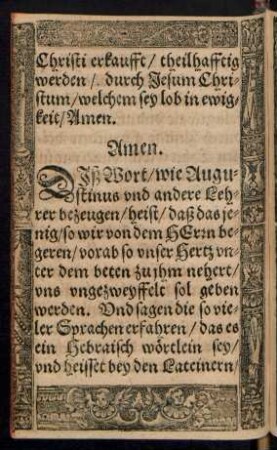 Christi erkaufft/ theilhafftig
werden/ durch Jesum Chri-
stum/ welchem sey lob in ewig-
keit/ Amen.
Amen.
DJß Wort/ wie Augu-
stinus vnd andere Leh-
rer bezeugen/ heist/ daß das je-
nig/ so wir von dem HErrn be-
geren/ vorab so vnser Hertz vn-
ter dem beten zu jhm nehert/
vns vngezweyffelt sol geben
werden. Vnd sagen die so vie-
ler Sprachen erfahren/ das es
ein Hebraisch wörtlein sey/
vnd heisset bey den Lateinern/